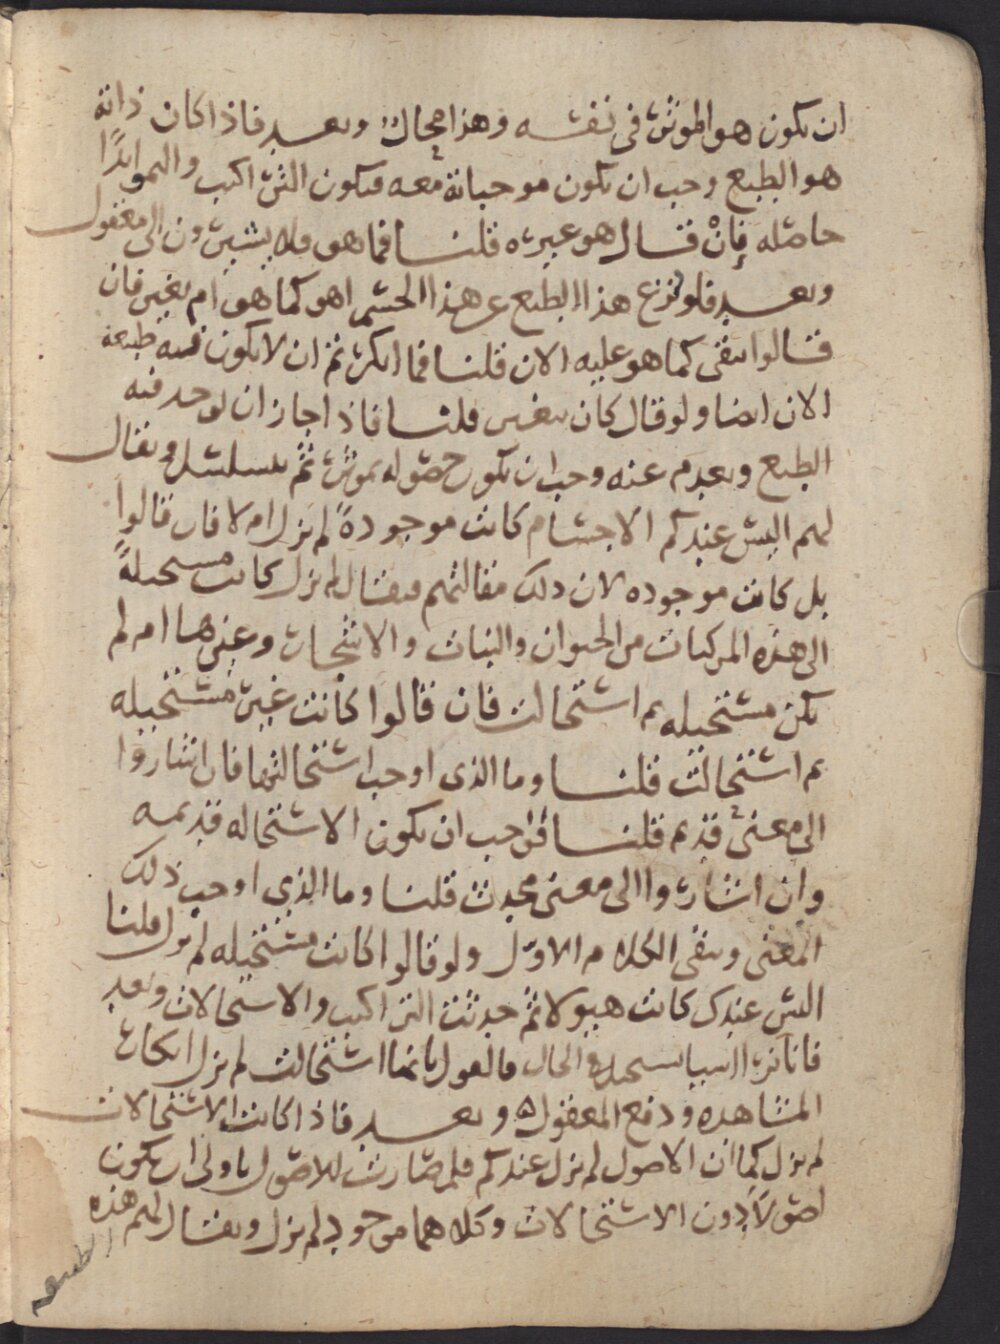 ان يكون هو الموثر في نفسه وهذا محال وبعد فاذا كان ذاته
هو الطبع وجب ان يكون موجباته معه فيكون التراكيب والنمو ابدًا
حاصله فإنْ قال هو غيره قلنا فما هو فلا يشيرون الى معقول
وبعد فلو نزع هذا الطبع عن هذا الجسم اهو كما هو ام يغير فان
قالوا يبقى كما هو عليه الان قلنا فما انكرتم ان لا يكون فيه طبيعه
الان ايضا ولو قال كان يتغير قلنا فاذا جاز ان يوجد فيه
الطبع ويعدم عنه وجب ان يكون حصوله بموثر ثم يتسلسل ويقال
لهم اليس عندكم الاجسام كانت موجودةً لم يزل ام لا فان قالوا
بل كانت موجوده لان ذلك مقالتهم فيقال لم يزل كانت مستحيلةً
الى هذه المركبات من الحيوان والنبات والاشجار وغيرها ام لم
يكن مستحيله ثم استحالت فان قالوا كانت غير مستحيله
ثم استحالت قلنا وما الذى اوجب استحالتها فان اشاروا
الى معنىً قديم قلنا فواجب ان يكون الاستحاله قديمه
وان اشاروا الى معنى محدث قلنا وما الذي اوجب ذلك
المعنى ويبقى الكلام الاول ولو قالوا كانت مستحيله لم يزل قلنا
اليس عندك كانت هيولا ثم حدثت التراكيب والاستحالات وبعد
فانا نرى اشيا مستحيله في الحال فالقول بانها استحالت لم يزل انكار
المشاهده ودفع المعقول ه وبعد فاذا كانت الاستحالات
لم يزل كما ان الاصول لم يزل عندكم فلم صارت للاصول باولى ان يكون
اصولاً دون الاستحالات وكلاهما موجود لم يزل ويقال لهم هذه
الطبيعه